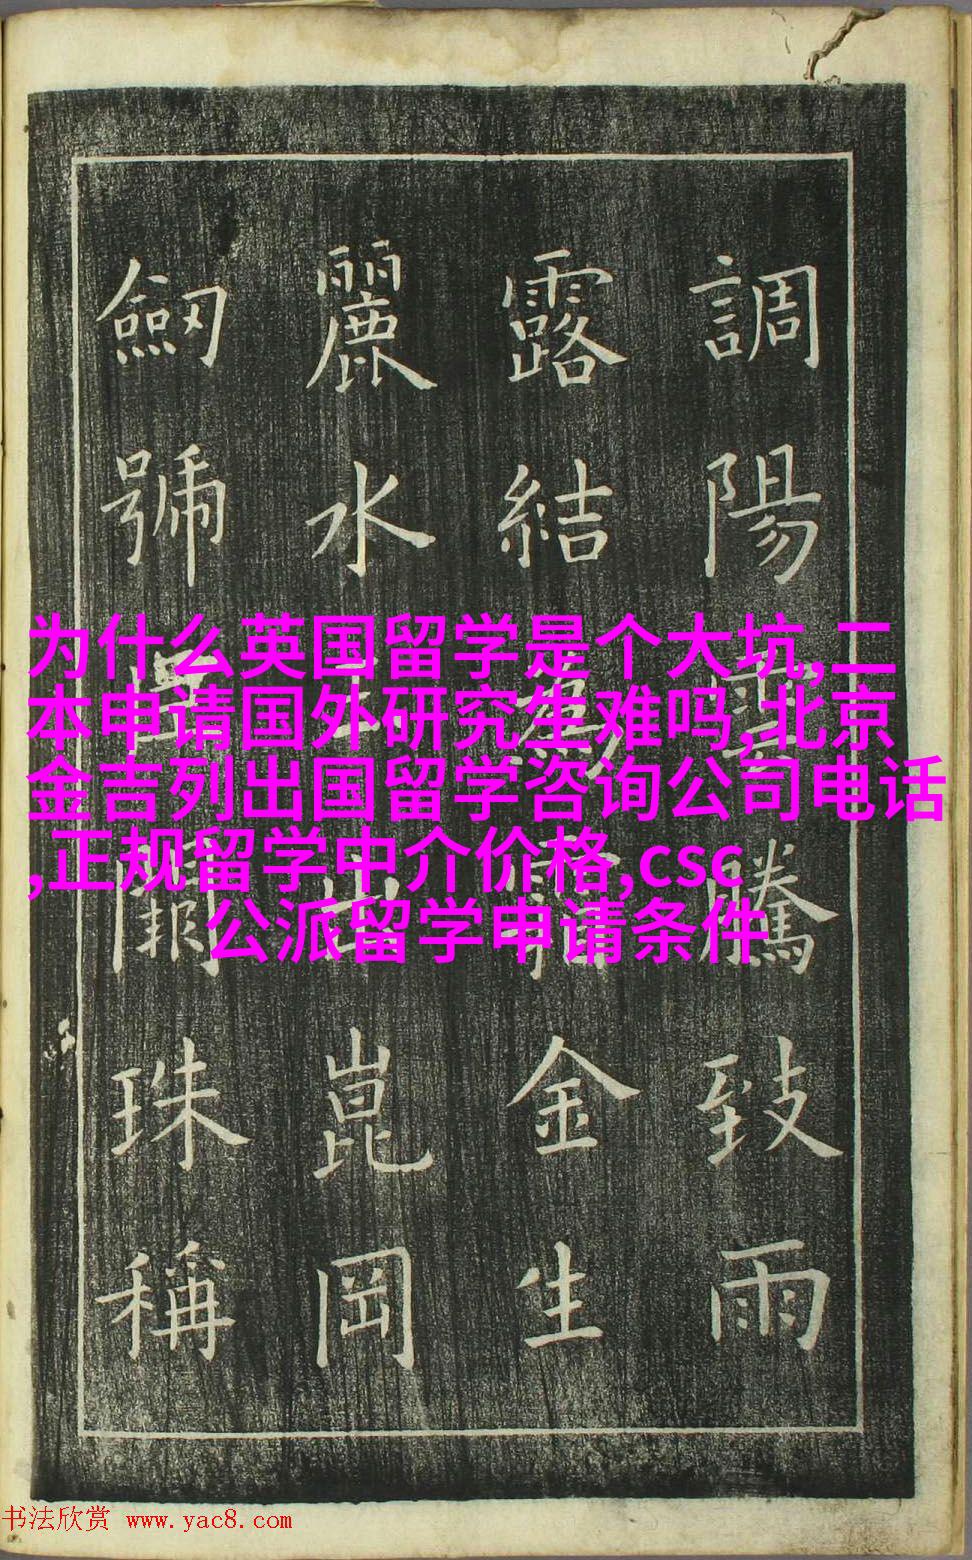 調陽騰致雨
露結金生
麗水崑岡
劔號珠稱
为什么英国留学是个大坑,二
本申请国外研究生难吗,北京
金吉列出国留学咨询公司电话
,正规留学中介价格,csc
公派留学申请条件
书法欣赏 www.yac8.com